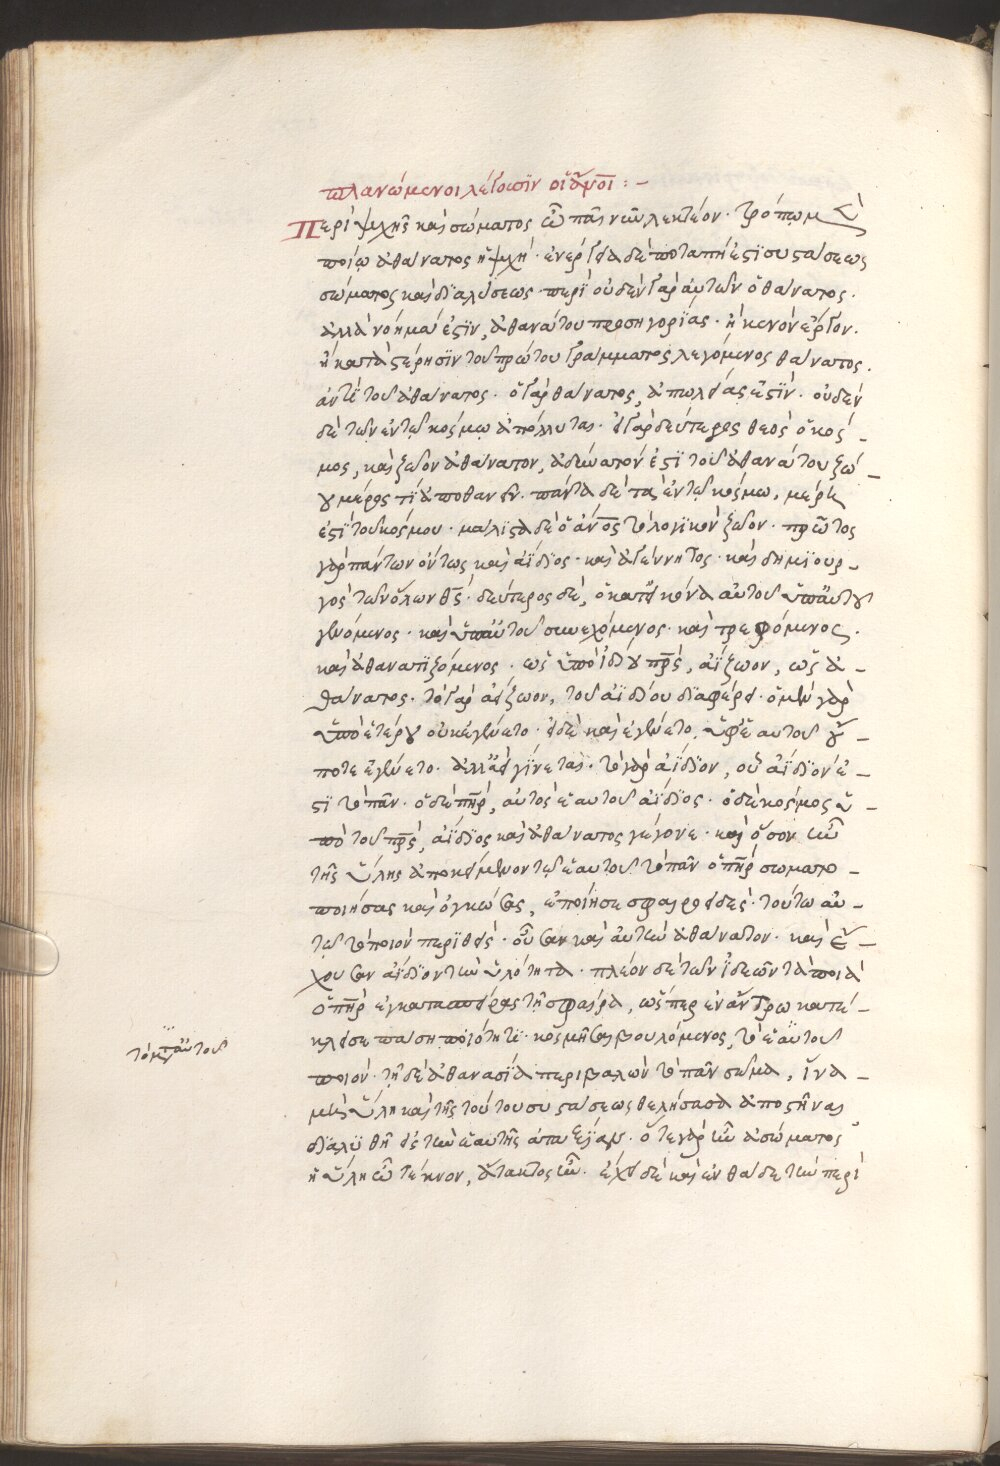 πλανώμενοι λέγουσϊν οἱ ἄνοι : –
Περὶ ψυχῆς καὶ σώματος ὦ παῖ νῦν λεκτέον · τρόπῳ μὲ
ποίῳ ἀθάνατος ἡ ψυχή · ἐνέργεια δὲ ποταπή ἐστϊ συστάσεως
σώματος καὶ διαλύσεως · περὶ οὐδὲν γὰρ αὐτῶν ὁ θάνατος ·
ἀλλὰ νόημά ἐστϊν, ἀθανάτου προσηγορίας · ἢ κενὸν ἔργον ·
ἢ κατὰ στέρησϊν τοῦ πρώτου γράμματος λεγόμενος θάνατος ·
ἀντὶ τοῦ ἀθάνατος · ὁ γὰρ θάνατος, ἀπωλείας ἐστϊν · οὐδὲν
δὲ τῶν ἐν τῷ κόσμῳ ἀπόλλυται · εἰ γὰρ δεύτερος θεὸς ὁ κόσ–
μος, καὶ ζῷον ἀθάνατον, ἀδύνατόν ἐστϊ τοῦ ἀθανάτου ζώ–
ου μέρος τϊ ἀποθανεῖν · πάντα δὲ τὰ ἐν τῷ κόσμω, μέρη
ἐστϊ τοῦ κόσμου · μάλιστα δὲ ὁ ἄνος τὸ λογϊκὸν ζῷον · πρῶτος
γὰρ πάντων ὄντως καὶ ἀΐδϊος · καὶ ἀγέννητος · καὶ δημϊουρ–
γὸς τῶν ὅλων θς · δεύτερος δὲ, ὁ κατ' εἰκόνα αὐτοῦ ὑπ' αὐτοῦ
γενόμενος · καὶ ὑπ' αὐτοῦ συνεχόμενος · καὶ τρεφόμενος ·
καὶ ἀθανατϊζόμενος · ὡς ὑπὸ ἰδίου πρς, ἀείζωον, ὡς ἀ–
θάνατος · τὸ γὰρ ἀείζωον, τοῦ ἀϊδίου διαφέρει · ὁ μὲν γὰρ
ὑπὸ ἑτέρου οὐκ ἐγένετο · εἰ δὲ καὶ ἐγένετο, ὑφ' ἑαυτοῦ οὔ–
ποτε ἐγένετο · ἀλλ' ἀεὶ γίνεται · τὸ γὰρ ἀίδϊον, οὗ ἀΐδϊόν ἐ–
στϊ τὸ πᾶν · ὁ δὲ πηρ, αὐτὸς ἑαυτοῦ ἀΐδϊος · ὁ δὲ κόσμος ὑ–
πὸ τοῦ πρς, ἀΐδϊος καὶ ἀθάνατος γέγονε · καὶ ὅσον ἦν
τῆς ὕλης ἀποκείμενον τῷ ἑαυτοῦ τὸ πᾶν ὁ πηρ σωματο–
ποιήσας καὶ ὀγκώσας, ἐποίησε σφαιροειδὲς · τούτω αὐ–
τῷ τὸ ποιὸν περϊθεὶς · οὖσαν καὶ αὐτὴν ἀθάνατον · καὶ ἔ–
χουσαν ἀΐδϊον τὴν ὑλότητα · πλέον δὲ τῶν ἰδεῶν τὰ ποιὰ
ὁ πηρ ἐγκατασπείρας τῇ σφαίρα, ὥσπερ ἐν ἄντρω κατέ–
κλεισε πάση ποιότητϊ · κοσμῆσαι βουλόμενος, τὸ ἑαυτοῦ
τὸ μετ' αὐτοῦ
ποιόν · τῇ δὲ ἀθανασία περιβαλὼν τὸ πᾶν σῶμα, ἵνα –
μὴ ὕλη καὶ τῆς τούτου συστάσεως θελήσασα ἀποστῆναι
διαλυθῆ εἰς τὴν ἑαυτῆς ἀταξίαν · ὅτε γὰρ ἦν ἀσώματος
ἡ ὕλη ὦ τέκνον, ἄτακτος ἦν · ἔχει δὲ καὶ ἐνθάδε τὴν περὶ